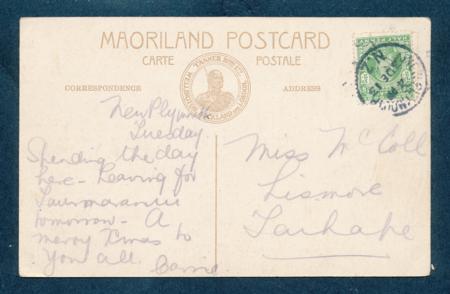 MAORILAND POSTCARD
CARTE POSTALE
CORRESPONDENCE
ADDRESS
New Plymouth
Tuesday.
Spending the day
here - leaving for
tomorrow - A
merry Xmas to
you all.
Miss McColl
Lismore
Taihape